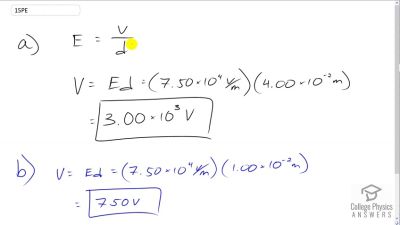 15PE
a) E = V/d
V = Ed = (7.50×10⁴ V/m)(4.00×10⁻²m)
= 3.00×10³ V
b) V = Ed = (7.50×10⁴ V/m)(1.00×10⁻²m)
= 750V
College Physics
ANSWERS